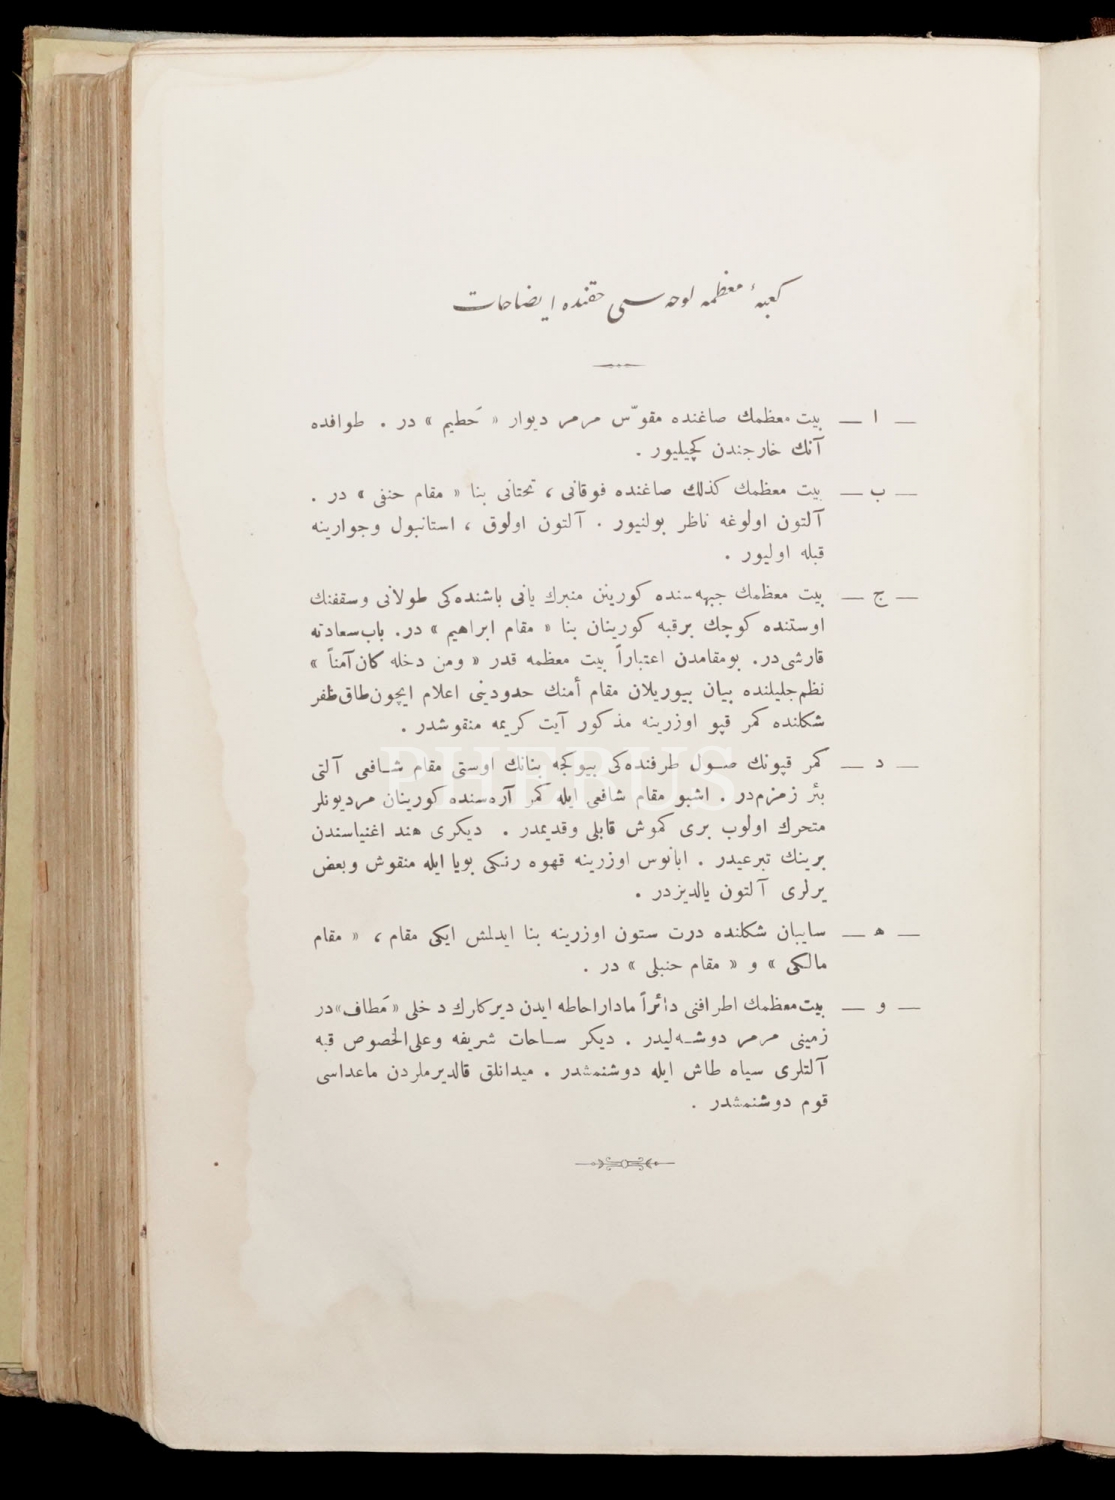 كعبهٔ معظمه لوحه‌سی حقنده ایضاحات
— ا — بیت معظمك صاغنده مقوّس مرمر دیوار « حَطیم » در . طوافده
آنك خارجندن کچیلیور .
— ب — بیت معظمك كذلك صاغنده فوقانی ، تحتانی بنا « مقام حنفی » در .
آلتون اولوغه ناظر بولنیور . آلتون اولوق ، استانبول وجوارینه
قبله اولیور .
— ج — بیت معظمك جبهه‌سنده كورینن منبرك یانی باشنده‌كی طولانی وسقفنك
اوستنده كوچك برقبه كورینان بنا « مقام ابراهیم » در. باب‌سعادته
قارشی‌در. بومقامدن اعتباراً بیت معظمه قدر « ومن دخله كان آمناً »
نظم‌جلیلنده بیان بیوریلان مقام أمنك حدودینی اعلام ایچون‌طاق‌ظفر
شكلنده كمر قپو اوزرینه مذكور آیت كریمه منقوشدر .
— د — كمر قپونك صول طرفنده‌كی بیوكجه بنانك اوستی مقام شافعی آلتی
بئر زمزم‌در . اشبو مقام شافعی ایله كمر آره‌سنده كورینان مردیونلر
متحرك اولوب بری كموش قابلی وقدیمدر . دیكری هند اغنیاسندن
برینك تبرعیدر . ابانوس اوزرینه قهوه رنكی بویا ایله منقوش وبعض
یرلری آلتون یالدیزدر .
— ه — سایبان شكلنده درت ستون اوزرینه بنا ایدلمش ایكی مقام ، « مقام
مالكی » و « مقام حنبلی » در .
— و — بیت‌معظمك اطرافنی دائراً مادار احاطه ایدن دیركارك دخلی « مَطاف »در
زمینی مرمر دوشه‌لیدر . دیكر ساحات شریفه وعلی‌الخصوص قبه
آلتلری سیاه طاش ایله دوشنمشدر . میدانلق قالدیرملردن ماعداسی
قوم دوشنمشدر .
PHEBUS